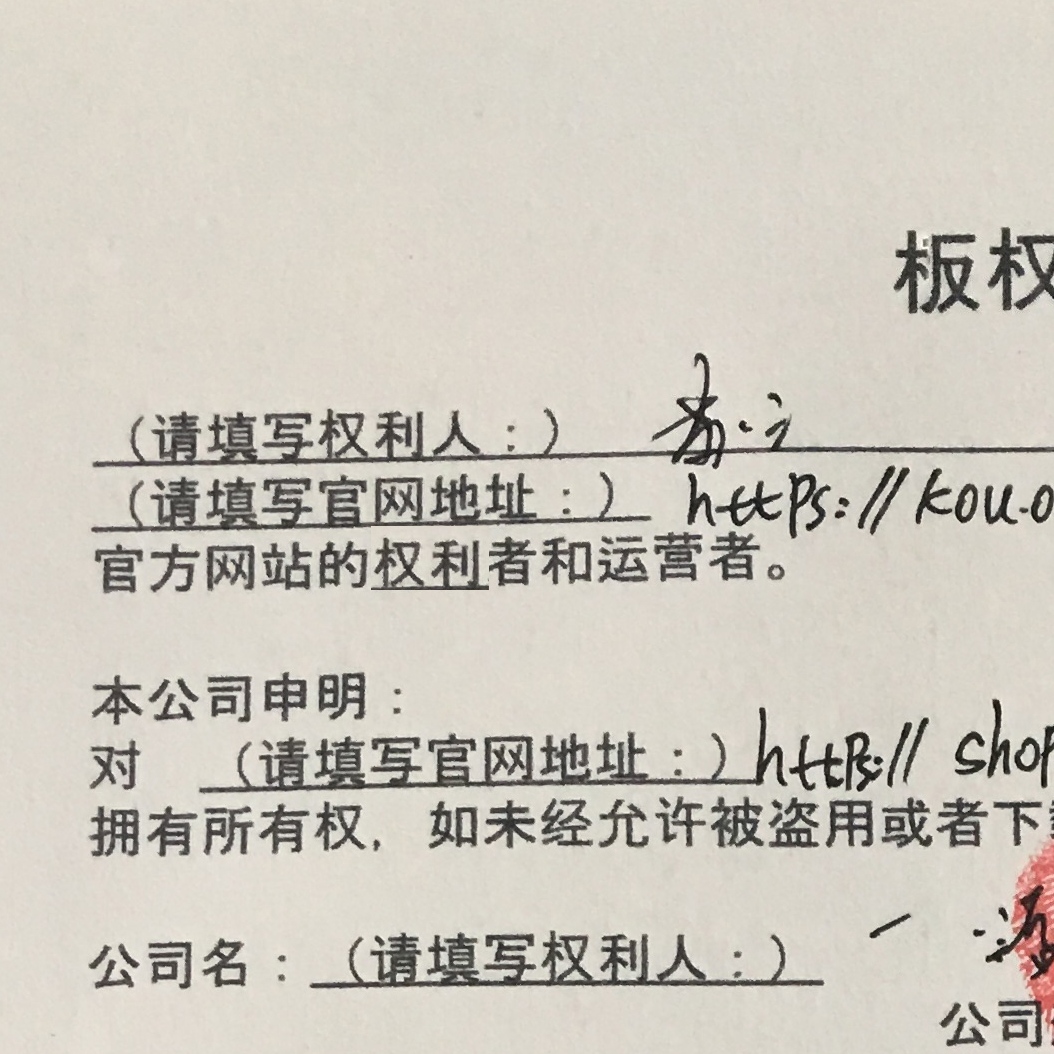 板权
（请填写权利人：）
（请填写官网地址：） https://kou.o
官方网站的权利者和运营者。
本公司申明：
对 （请填写官网地址：）https:// shop
拥有所有权，如未经允许被盗用或者下
公司名：（请填写权利人：）
公司